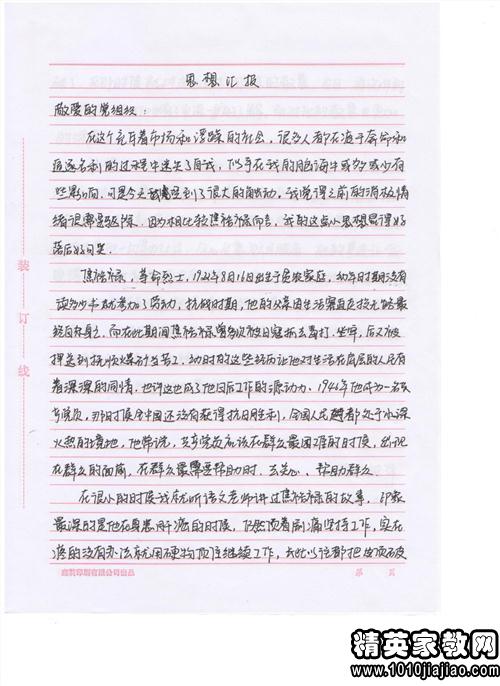 思想汇报
敬爱的党组织：
在这个充斥着市场和浮躁的社会，很多人都在疲于奔命和
追逐名利的过程中迷失了自我，似乎在我的脑海中或多或少有
些影响，可是今天我受到了很大的触动。我觉得之前的消极情
绪很需要驱除，因为相比较焦裕禄而言，我的这点小思想显得好
落后好可笑。
焦裕禄，革命烈士，1922年8月16日出生于贫农家庭，幼年时期没有
读多少书就参加了劳动，抗战时期，他的父亲因生活窘迫走投无路最
终自杀身亡。而在此期间焦裕禄曾多次被日寇抓去毒打、坐牢，后又被
押送到抚顺煤矿当苦工，幼时的这些经历让他对生活在底层的人民有
着深深的同情，也许这也成了他日后工作的源动力。1946年他成为一名共
产党员，那时候全中国还没有获得抗日胜利，全国人民都处于水深
火热的境地，他常说，共产党员应该在群众最困难的时候，出现
在群众的面前，在群众最需要帮助时，去关心、帮助群众。
在很小的时候我就听语文老师讲过焦裕禄的故事，印象
最深的是他在身患肝癌的时候，仍然顶着剧痛坚持工作，实在
疼的没有办法就用硬物顶住继续工作，长此以往都把
装
订
线
印刷有限公司出品
第 页
精英家教网
www.1010jiajiao.com